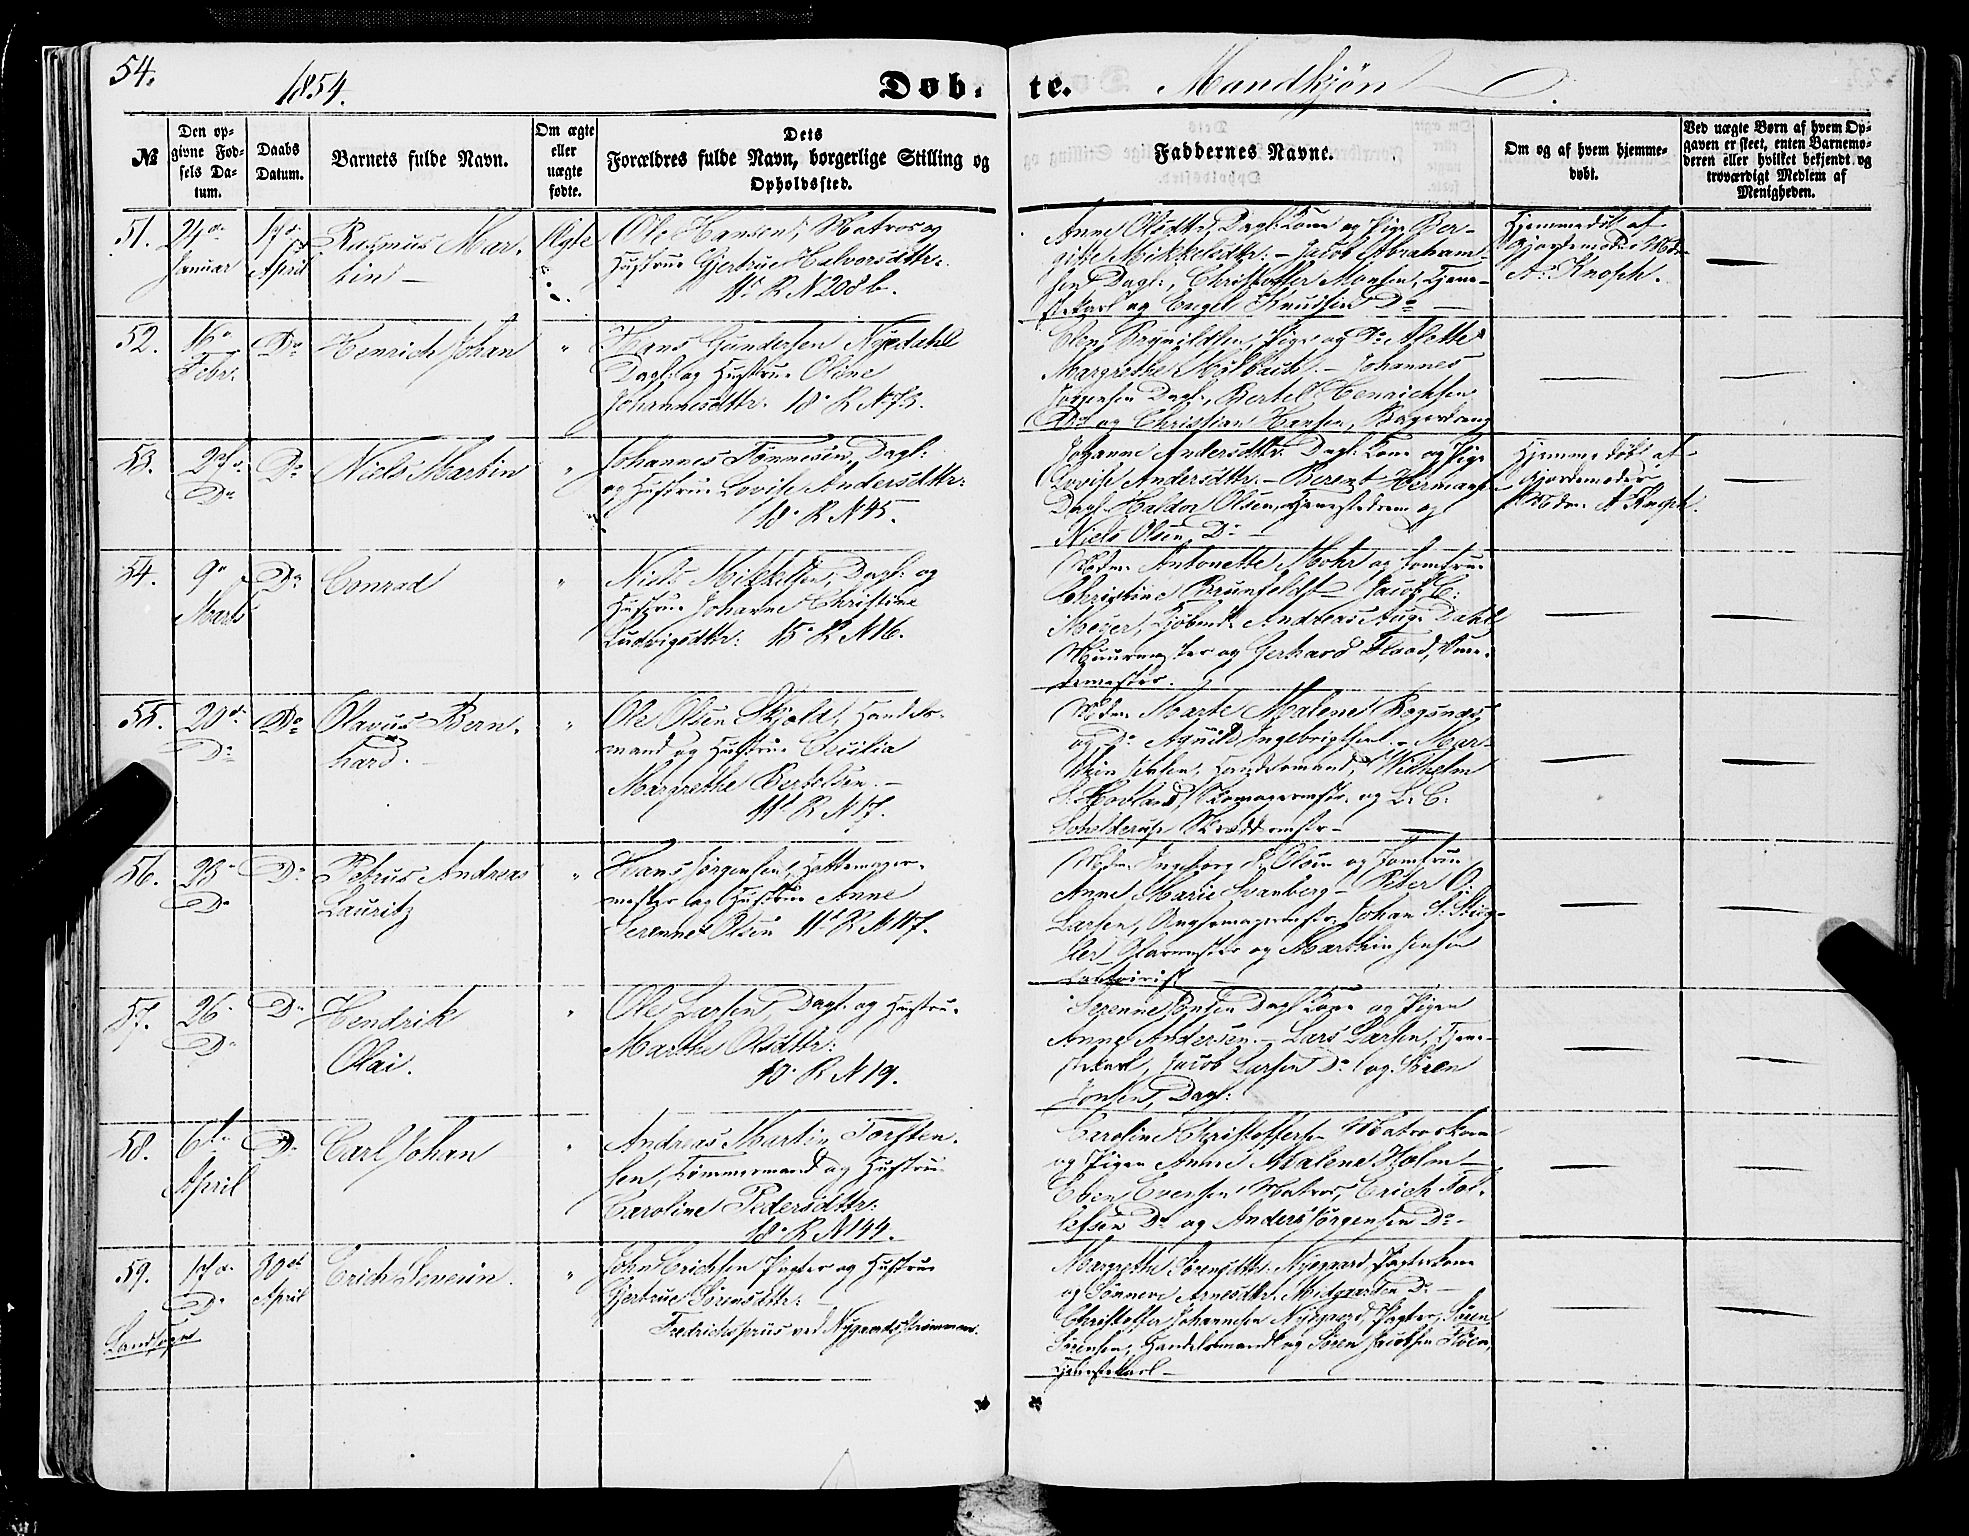 54.
1854.
Døb-
te.
Mandkjøn
№
Den op-
givne Fød-
sels Da-
tum.
Daabs
Datum.
Barnets fulde Navn.
Om ægte
eller
uægte
fødte.
Dets
Forældres fulde Navn, borgerlige Stilling og
Opholdssted.
Faddernes Navne.
Om og af hvem hjemme-
døbt.
Ved uægte Børn af hvem Op-
gaven er skeet, enten Barnemo-
deren eller hvilket bekjendt og
troværdigt Medlem af
Menigheden.
51.
24de
Januar
17de
April
Rasmus Mar-
tin –
Ægte
Ole Hansen, Matros og
Hustrue Gjertrue Halvorsdttr:
11te R N 208 b.
Anne Olsdttr, Dagl: Kone og Pige Ber-
gitte Mikkelsdttr: – Jacob Abraham-
sen Dagl:, Christoffer Monsen, Tjene-
stekarl og Engel Knudsen Do –
Hjemmedøbt af
Gjordemoder Mdm
A. Knoph.
52.
16de
Febr:
Do
Henrich Johan
"
Hans Gundersen Nyedahl
Dagl: og Hustrue Oline
Johannesdttr. 18de R N 73.
Margrethe
Johannes
Jørgensen Dagl:, Bertel Henrichsen
Do og Christian Hansen, Bagerdreng
53.
Do
Do
Niels Martin
"
Johannes Tønnesen, Dagl:
og Hustrue Lovise Andersdttr:
18de R N 45.
Johanne Andersdttr. Dagl: Kone og Pige
Lovise Andersdttr. – Berent Hermans
Dagl: Haldor Olsen, Tjenestedreng og
Niels Olsen, Do –
Hjemmedøbt af
Gjordemoder
Mdm A Knoph.
54.
9de
Marts
Do
Conrad
"
Niels Mikkelsen, Dagl: og
Hustrue Johanne Christine
Ludvigsdttr: 15de R N 16.
Mdm Antonette Mohr og Jomfrue
Christine Brunfeldt – Jacob C:
Meyer, Kjøbmd. Andreas Aug: Dahl
Muurmester og Gerhard Flood,
55.
20de
Do
Do
Olavus Bern-
hard. –
"
Ole Olsen Skjold, Handels-
mand og Hustrue Cecilia
Margrethe Bertelsen. –
11te R N 17.
Mdm Marte Malene
og Do Ingebrigtsen – Mar-
Handelsmand, Wilhelm
S. Hovland, Skomagermstr. og L. C.
56.
23de
Do
Do
Petrus Andreas
Lauritz
"
Hans Jørgensen, Hattemager-
mester og Hustrue Anne
Serenne Olsen 11te R N 117.
Mdm Ingeborg Olsen og Jomfrue
Anne Marie Svanberg – Peter O:
Larsen, Johan S.
Glarmester og Marthin Jensen
Contorist –
57.
26de
Do
Do
Hendrik
Olai.
"
Ole Larsen, Dagl: og Hustrue
Marthe Olsdttr:
10de R N 19.
Serenne Jonsen Dagl: Kone og Pigen
Anne Andersen. – Lars Larsen, Tjene-
stekarl, Jacob Larsen Do og Søren
Jonsen, Dagl:
58.
6te
April
Do
Carl Johan
"
Andreas Martin Torsten-
sen, Tømmermand og Hustrue
Caroline Pedersdttr:
18de R N 144.
Caroline Christoffersen Matroskone
og Pigen Anne Malene Holm –
Even Evensen Matros, Erich Tol-
lefsen Do og Anders Jørgensen Do –
59.
17de
Do
Landsogn
30te
April
Erich Severin.
"
John Erichsen Pagter og Hustrue
Gjertrue Sørensdttr:
Fredrichsprüs ved Nygaardsstrømmen.
Margrethe Sørensdttr. Nyegaard, Pagterkone
og Sønneve Arnesdttr. Midgaarden Do –
Christoffer Johannesen Nyegaard, Pagter, Søren
Sørensen, Handelsmand og Søren Jacobsen
Tjenestekarl –